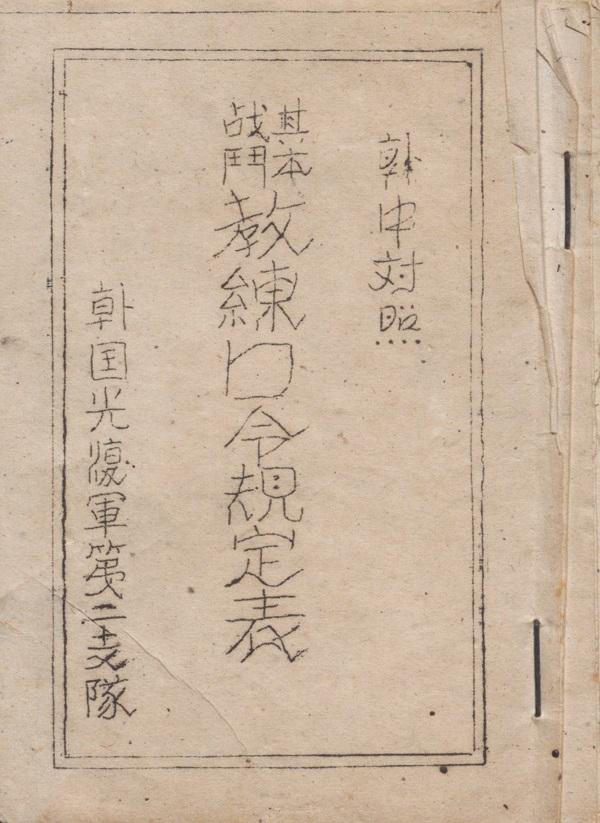 韓中対照
基本
战鬥
教練口令規定表
韓国光復軍第二支隊